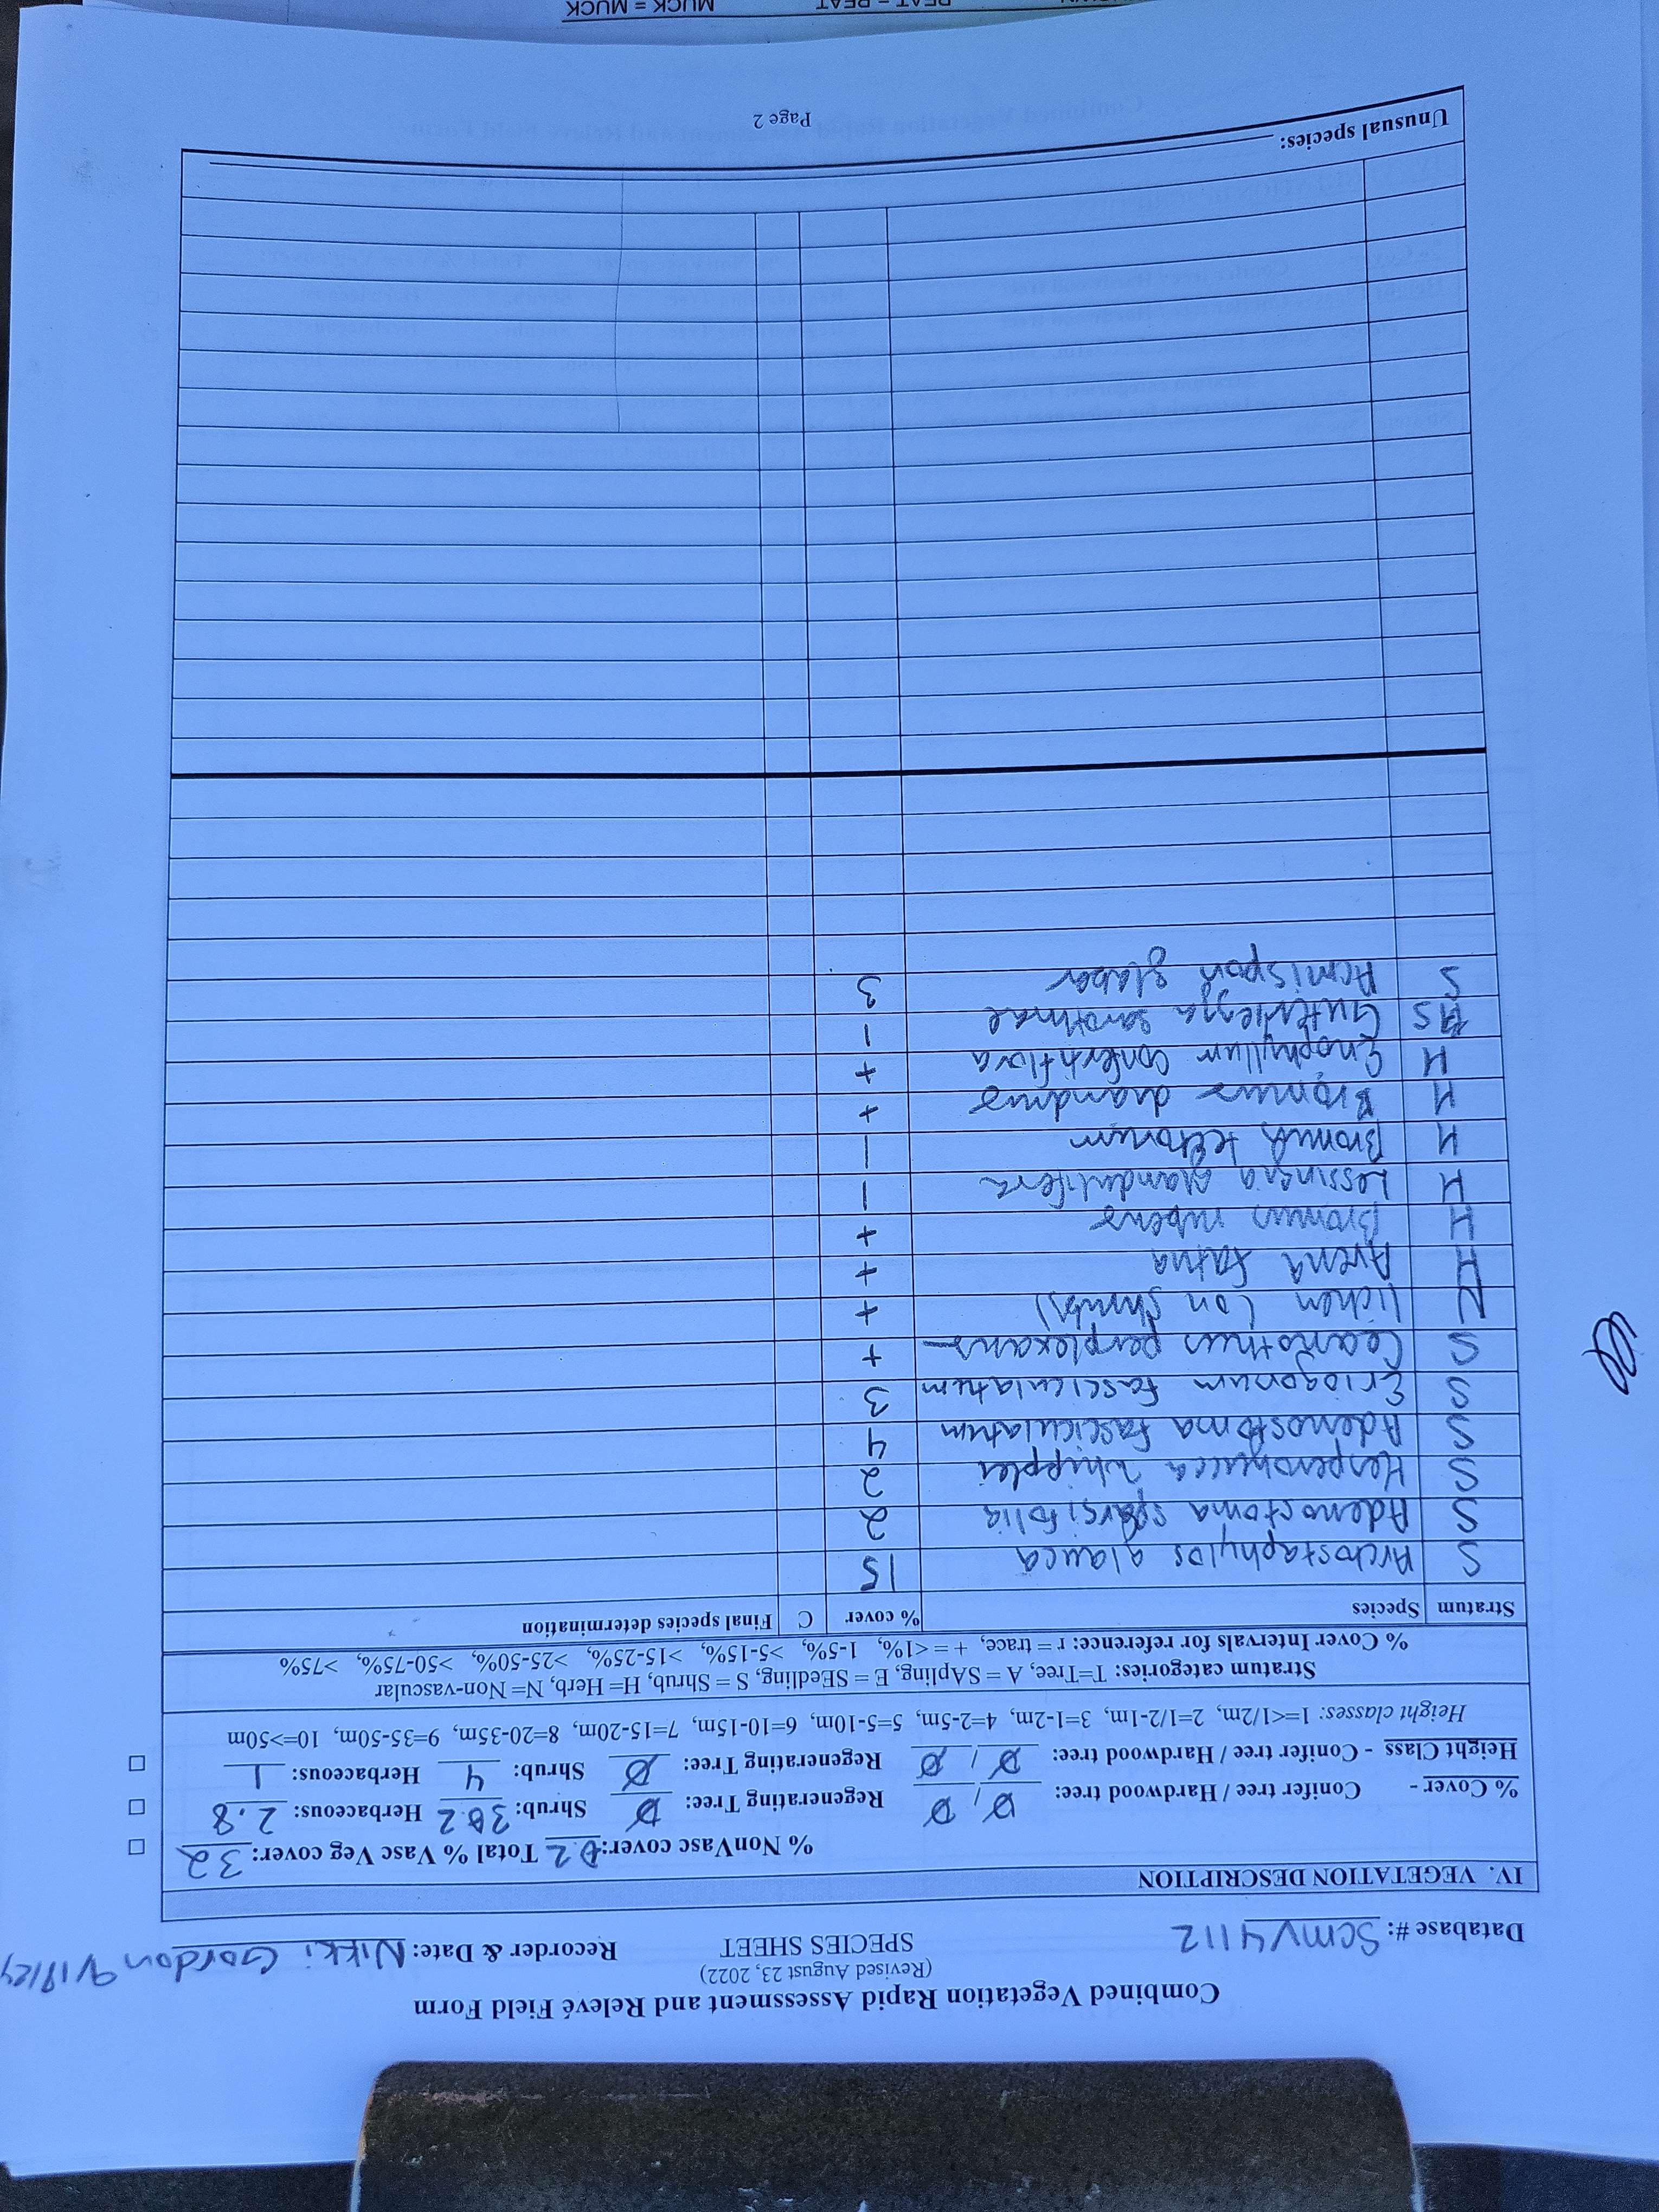 Combined Vegetation Rapid Assessment and Relevé Field Form
(Revised August 23, 2022)
Database #: SCMV4112 SPECIES SHEET Recorder & Date: Nikki Gordon 9/19/24
IV. VEGETATION DESCRIPTION
% NonVasc cover: 0.2 Total % Vasc Veg cover: 32
% Cover - Conifer tree / Hardwood tree: Ø / Ø Regenerating Tree: Ø Shrub: 30.2 Herbaceous: 2.8
Height Class - Conifer tree / Hardwood tree: Ø / Ø Regenerating Tree: Ø Shrub: 4 Herbaceous: 1
Height classes: 1=<1/2m, 2=1/2-1m, 3=1-2m, 4=2-5m, 5=5-10m, 6=10-15m, 7=15-20m, 8=20-35m, 9=35-50m, 10=>50m
Stratum categories: T=Tree, A = SApling, E = SEedling, S = Shrub, H= Herb, N= Non-vascular
% Cover Intervals for reference: r = trace, + = <1%, 1-5%, >5-15%, >15-25%, >25-50%, >50-75%, >75%
Stratum Species % cover C Final species determination
S Arctostaphylos glauca 15
S Adenostoma sparsifolia 2
S Hesperoyucca whipplei 2
S Adenostoma fasciculatum 4
S Eriogonum fasciculatum 3
S Ceanothus perplexans +
N lichen (on shrubs) +
H Avena fatua +
H Bromus rubens +
H Lessingia glandulifera 1
H Bromus tectorum 1
H Bromus diandrus +
H Eriophyllum confertiflora +
S Gutierrezia sarothrae 1
S Acmispon glaber 3
Unusual species:
Page 2
MUCK = MUCK